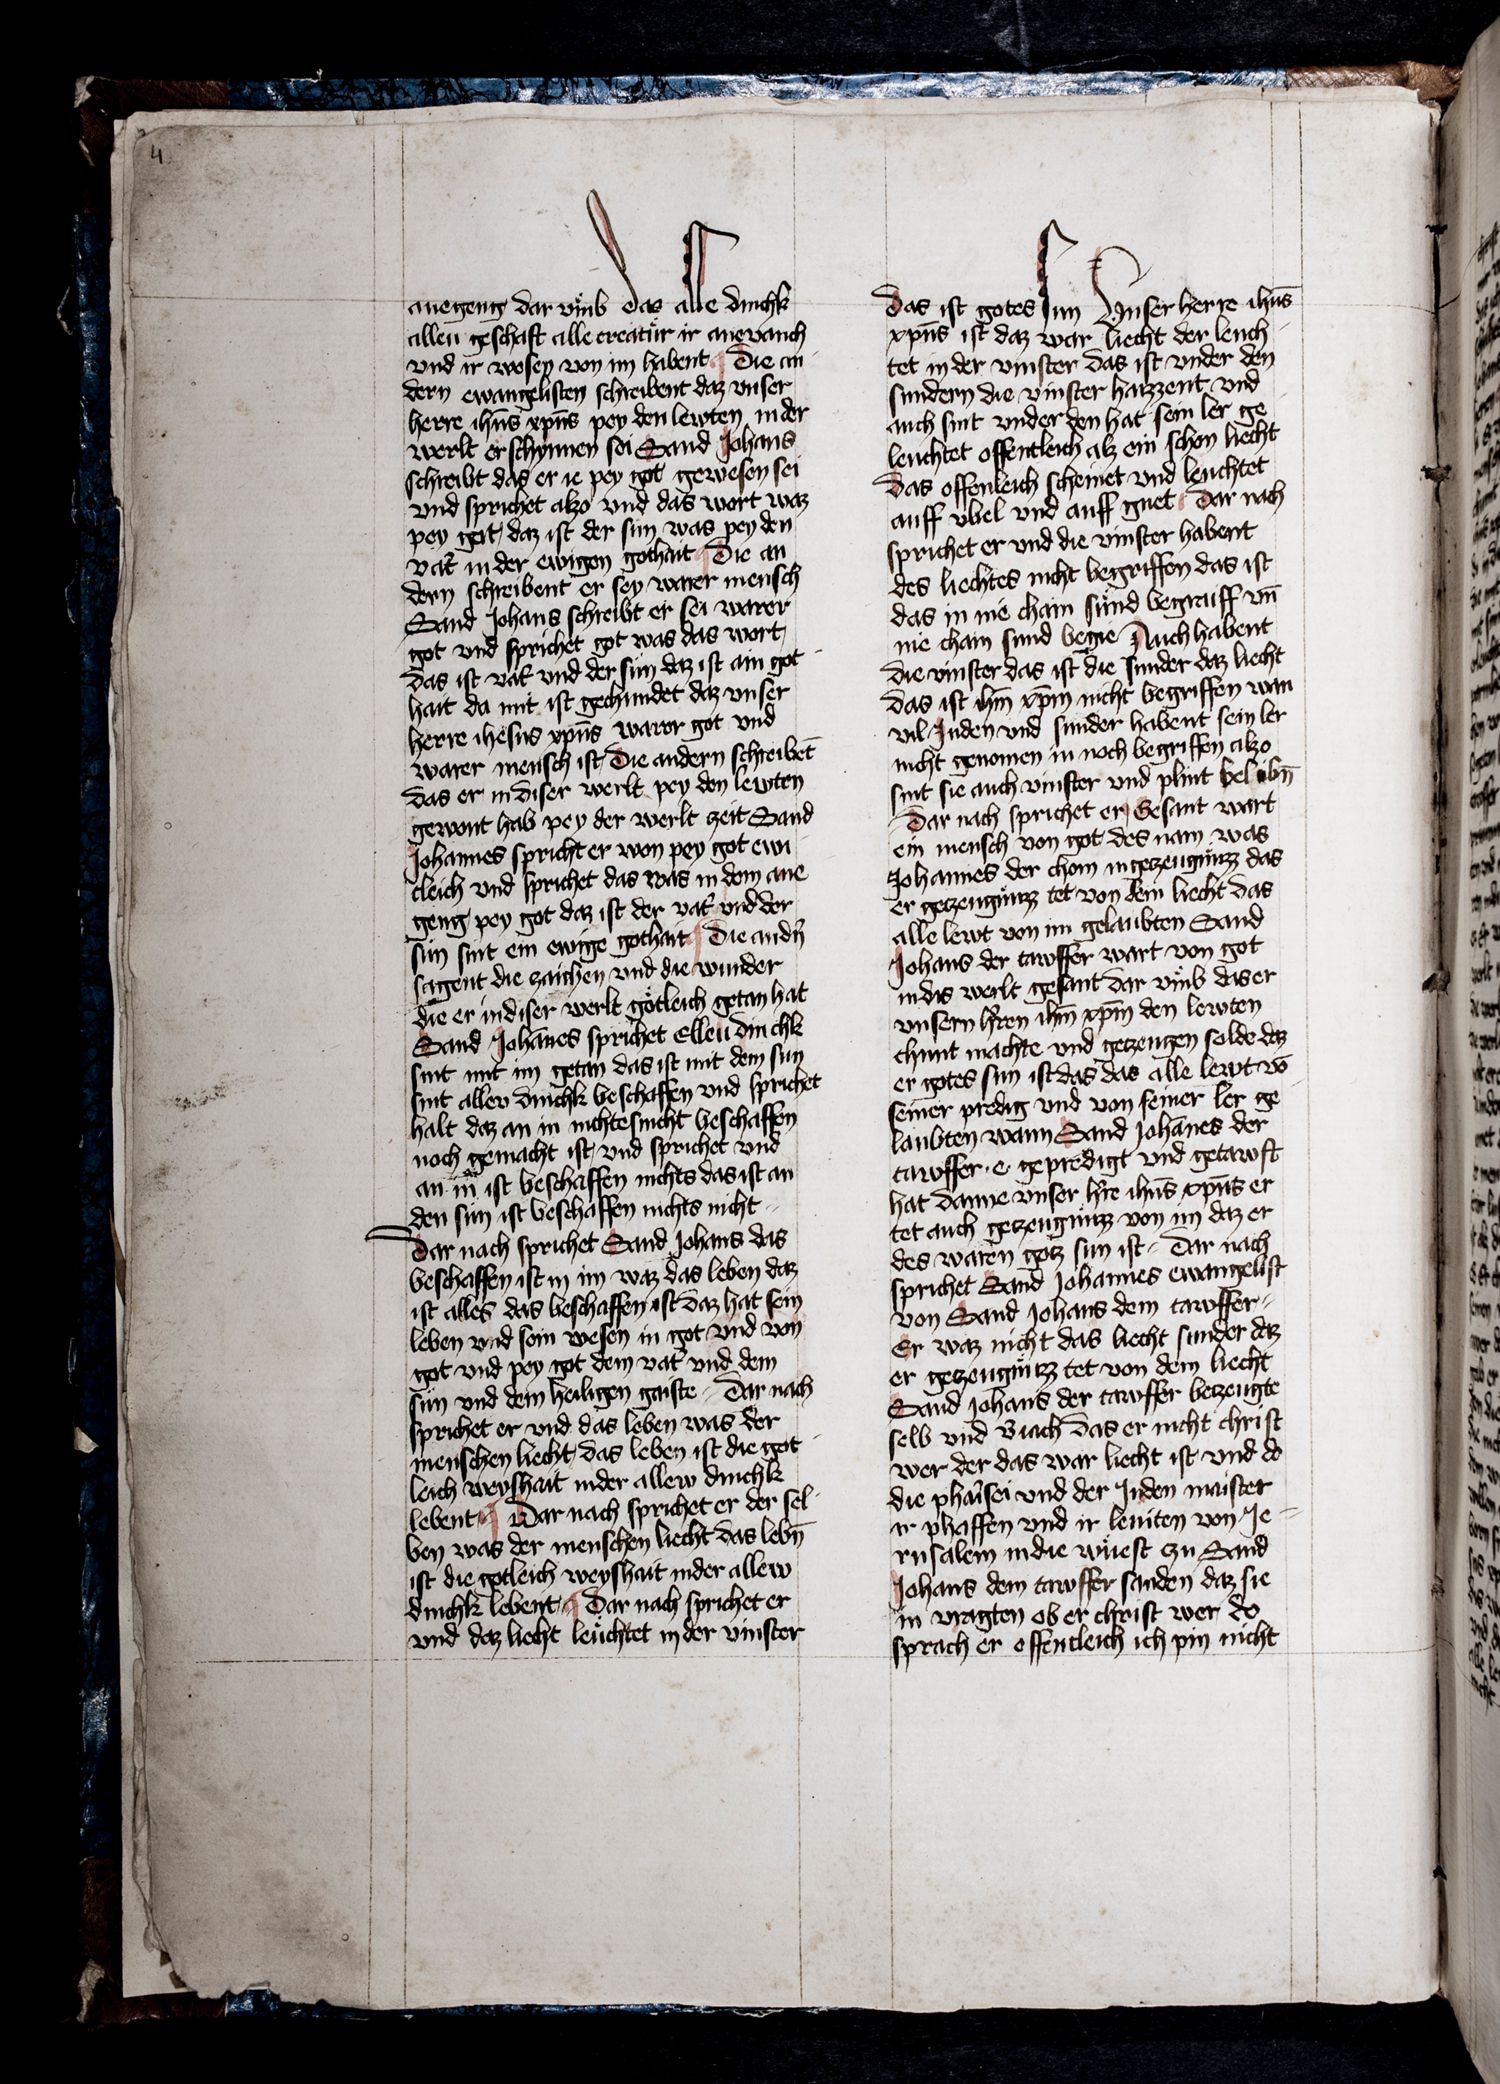 4
anegeng dar vmb das alle dinchk
allen geschaft alle creatür ir anevanch
vnd ir wesen von im habent Die an
dern ewangelisten schreibent daz vnser
herre ihūs xpūs pey den lewten in der
werlt erschynnen sei Sand Johans
schreibt das er ie pey got gewesen sei
vnd sprichet also vnd das wort waz
pey got daz ist der sun was pey den
vat̄ in der ewigen gothait Die an
dern schreibent er sey warer mensch
Sand Johans schreibt er sei warer
got vnd sprichet got was das wort
das ist vat̄ vnd der sun daz ist ain got
hait da mit ist gechundet daz vnser
herre ihesus xpūs warer got vnd
warer mensch ist Die andern schreibēt
das er in diser werlt pey den lewten
gewont hab pey der werlt zeit Sand
Johannes spricht er won pey got ewi
cleich vnd sprichet das was in dem ane
geng pey got daz ist der vat̄ vnd der
sun sint ein ewige gothait Die andn̄
sagent die zaichen vnd die wunder
die er in diser werlt götleich getan hat
Sand Johānes sprichet Elleu dinchk
sint mit im getan das ist mit dem sun
sint allev dinchk beschaffen vnd sprichet
halt daz an in nichtesnicht beschaffen
noch gemacht ist vnd sprichet vnd
an in ist beschaffen nichts das ist an
den sun ist beschaffen nichts nicht
Dar nach sprichet Sand Johans das
beschaffen ist in im waz das leben daz
ist alles das beschaffen ist daz hat sein
leben vnd sein wesen in got vnd von
got vnd pey got dem vat̄ vnd dem
sun vnd dem heiligen gaiste Dar nach
sprichet er vnd das leben was der
menschen liecht das leben ist die got
leich weyshait in der allew dinchk
lebent Dar nach sprichet er der sel
ben was der menschen liecht das lebn̄
ist die gotleich weyshait in der allew
dinchk lebent Dar nach sprichet er
vnd daz liecht leuchtet in der vinster
das ist gotes sun Vnser herre ihūs
xpūs ist daz war liecht der leuch
tet in der vinster das ist vnder den
sundern die vinster haizzent vnd
auch sint vnder den hat sein ler ge
leuchtet offentleich alz ein schon liecht
das offenleich scheinet vnd leuchtet
auff vbel vnd auff guet Dar nach
sprichet er vnd die vinster habent
des liechtes nicht begriffen das ist
das in nie chain sünd begraiff vn̄
nie chain sund begie Auch habent
die vinster das ist die sunder daz liecht
das ist ihm̄ xpm̄ nicht begriffen wan
vil Juden vnd sunder habent sein ler
nicht genomen in noch begriffen also
sint sie auch vinster vnd plint belibn̄
Dar nach sprichet er Gesant wart
ein mensch von got des nam was
Johannes der chom in gezeugnüzz das
er gezeugnüzz tet von dem liecht das
alle lewt von im gelaubten Sand
Johans der tawffer wart von got
in dis werlt gesant dar vmb das er
vnsern hr̄en ihm̄ xpm̄ den lewten
chunt machte vnd gezeugen solde daz
er gotes sun ist das das alle lewt vō
seiner predig vnd von seiner ler ge
laubten wann Sand Johānes der
tawffer e gepredigt vnd getawft
hat danne vnser hr̄e ihūs xpūs er
tet auch gezeugnüzz von im daz er
des waren gotz sun ist Dar nach
sprichet Sand Johannes ewangelist
von Sand Johans dem tawffer
Er waz nicht das liecht sunder daz
er gezeugnüzz tet von dem liecht
Sand Johans der tawffer bezeugte
selb vnd viach das er nicht christ
wer der das war liecht ist vnd do
die pharisei vnd der Juden maister
ir phaffen vnd ir leuiten von Je
rusalem in die wüest zu Sand
Johans dem tawffer sanden daz sie
in vragten ob er christ wer do
sprach er offentleich ich pin nicht